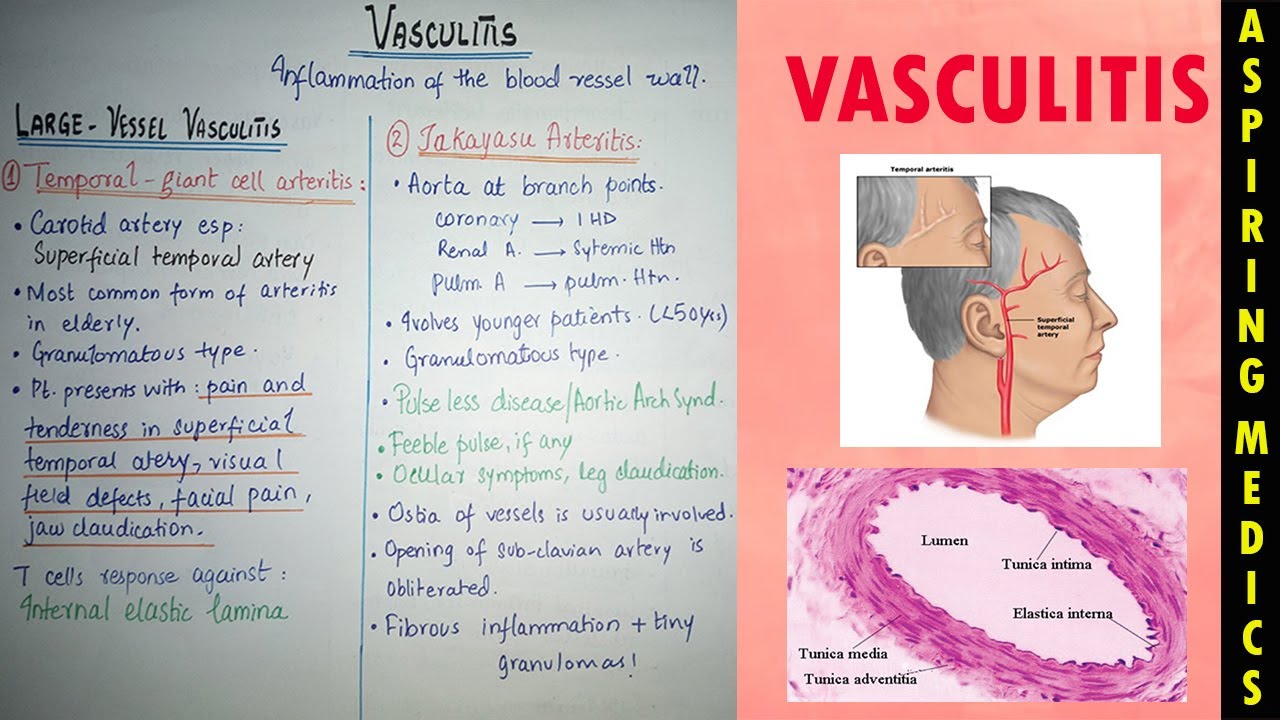 VASCULITIS
Inflammation of the blood vessel wall.
LARGE-VESSEL VASCULITIS
① Temporal-giant cell arteritis:
• Carotid artery esp:
Superficial temporal artery
• Most common form of arteritis
in elderly.
• Granulomatous type.
• Pt. presents with: pain and
tenderness in superficial
temporal atery, visual
field defects, facial pain,
jaw claudication.
T cells response against:
Internal elastic lamina
② Takayasu Arteritis:
• Aorta at branch points.
coronary → IHD
Renal A. → Sytemic Htn
pulm. A → pulm. Htn.
• Ivolves younger patients. (<50yrs)
• Granulomatious type.
• Pulse less disease/Aortic Arch Synd.
• Feeble pulse, if any
• Ocular symptoms, leg claudication.
• Ostia of vessels is usually involved.
• Opening of sub-clavian artery is
obliterated.
• Fibrous inflammation + tiny
granulomas!
VASCULITIS
Temporal arteritis
Superficial
temporal
artery
Lumen
Tunica intima
Elastica interna
Tunica media
Tunica adventitia
ASPIRING MEDICS